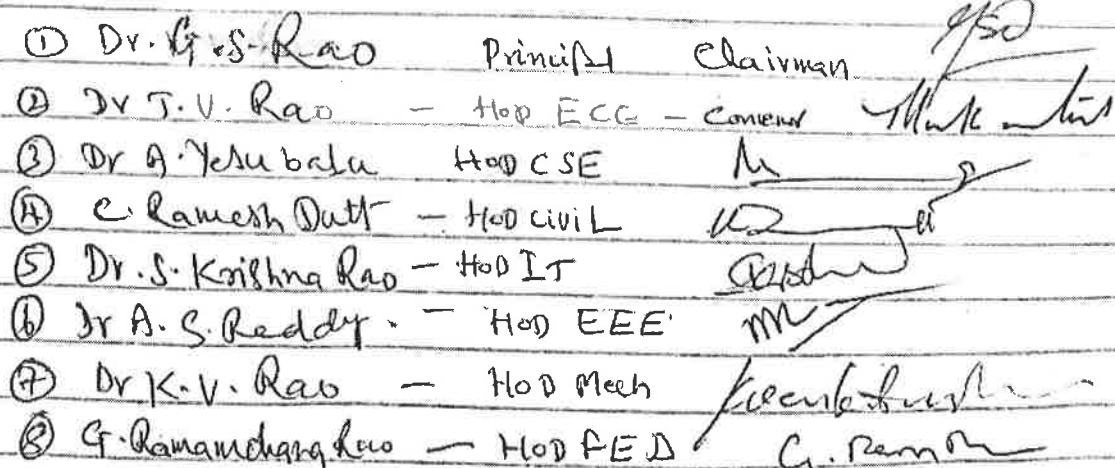 ① Dr. G.S. Rao Principal Chairman
② Dr J.V. Rao - HOD ECE - Convenor
③ Dr A. Yesubabu HOD CSE
④ C. Ramesh Dutt - HOD CIVIL
⑤ Dr. S. Krishna Rao - HOD IT
⑥ Dr A.S. Reddy. - HOD EEE
⑦ Dr K.V. Rao - HOD Mech
⑧ G. Ramamchang Rao - HOD FED